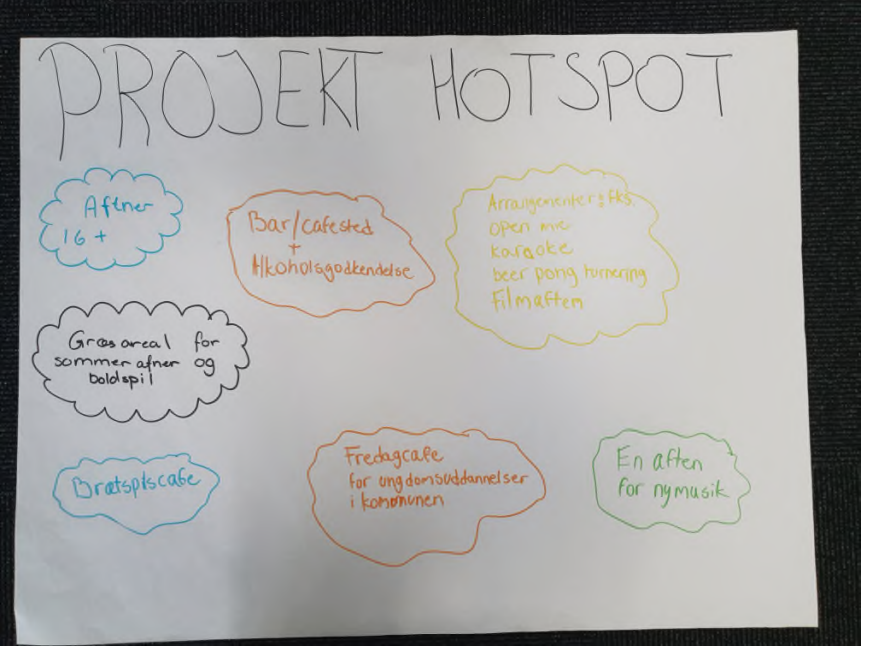 PROJEKT HOTSPOT
Aftner
16 +
Bar/cafested
+
Alkoholsgodkendelse
Arrangementer: fks.
open mic
karaoke
beer pong turnering
Filmaften
Græs areal for
sommer afner og
boldspil
Brætspilscafe
Fredagcafe
for ungdomsuddannelser
i kommunen
En aften
for ny musik